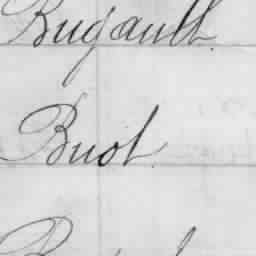 Bugault
Buot